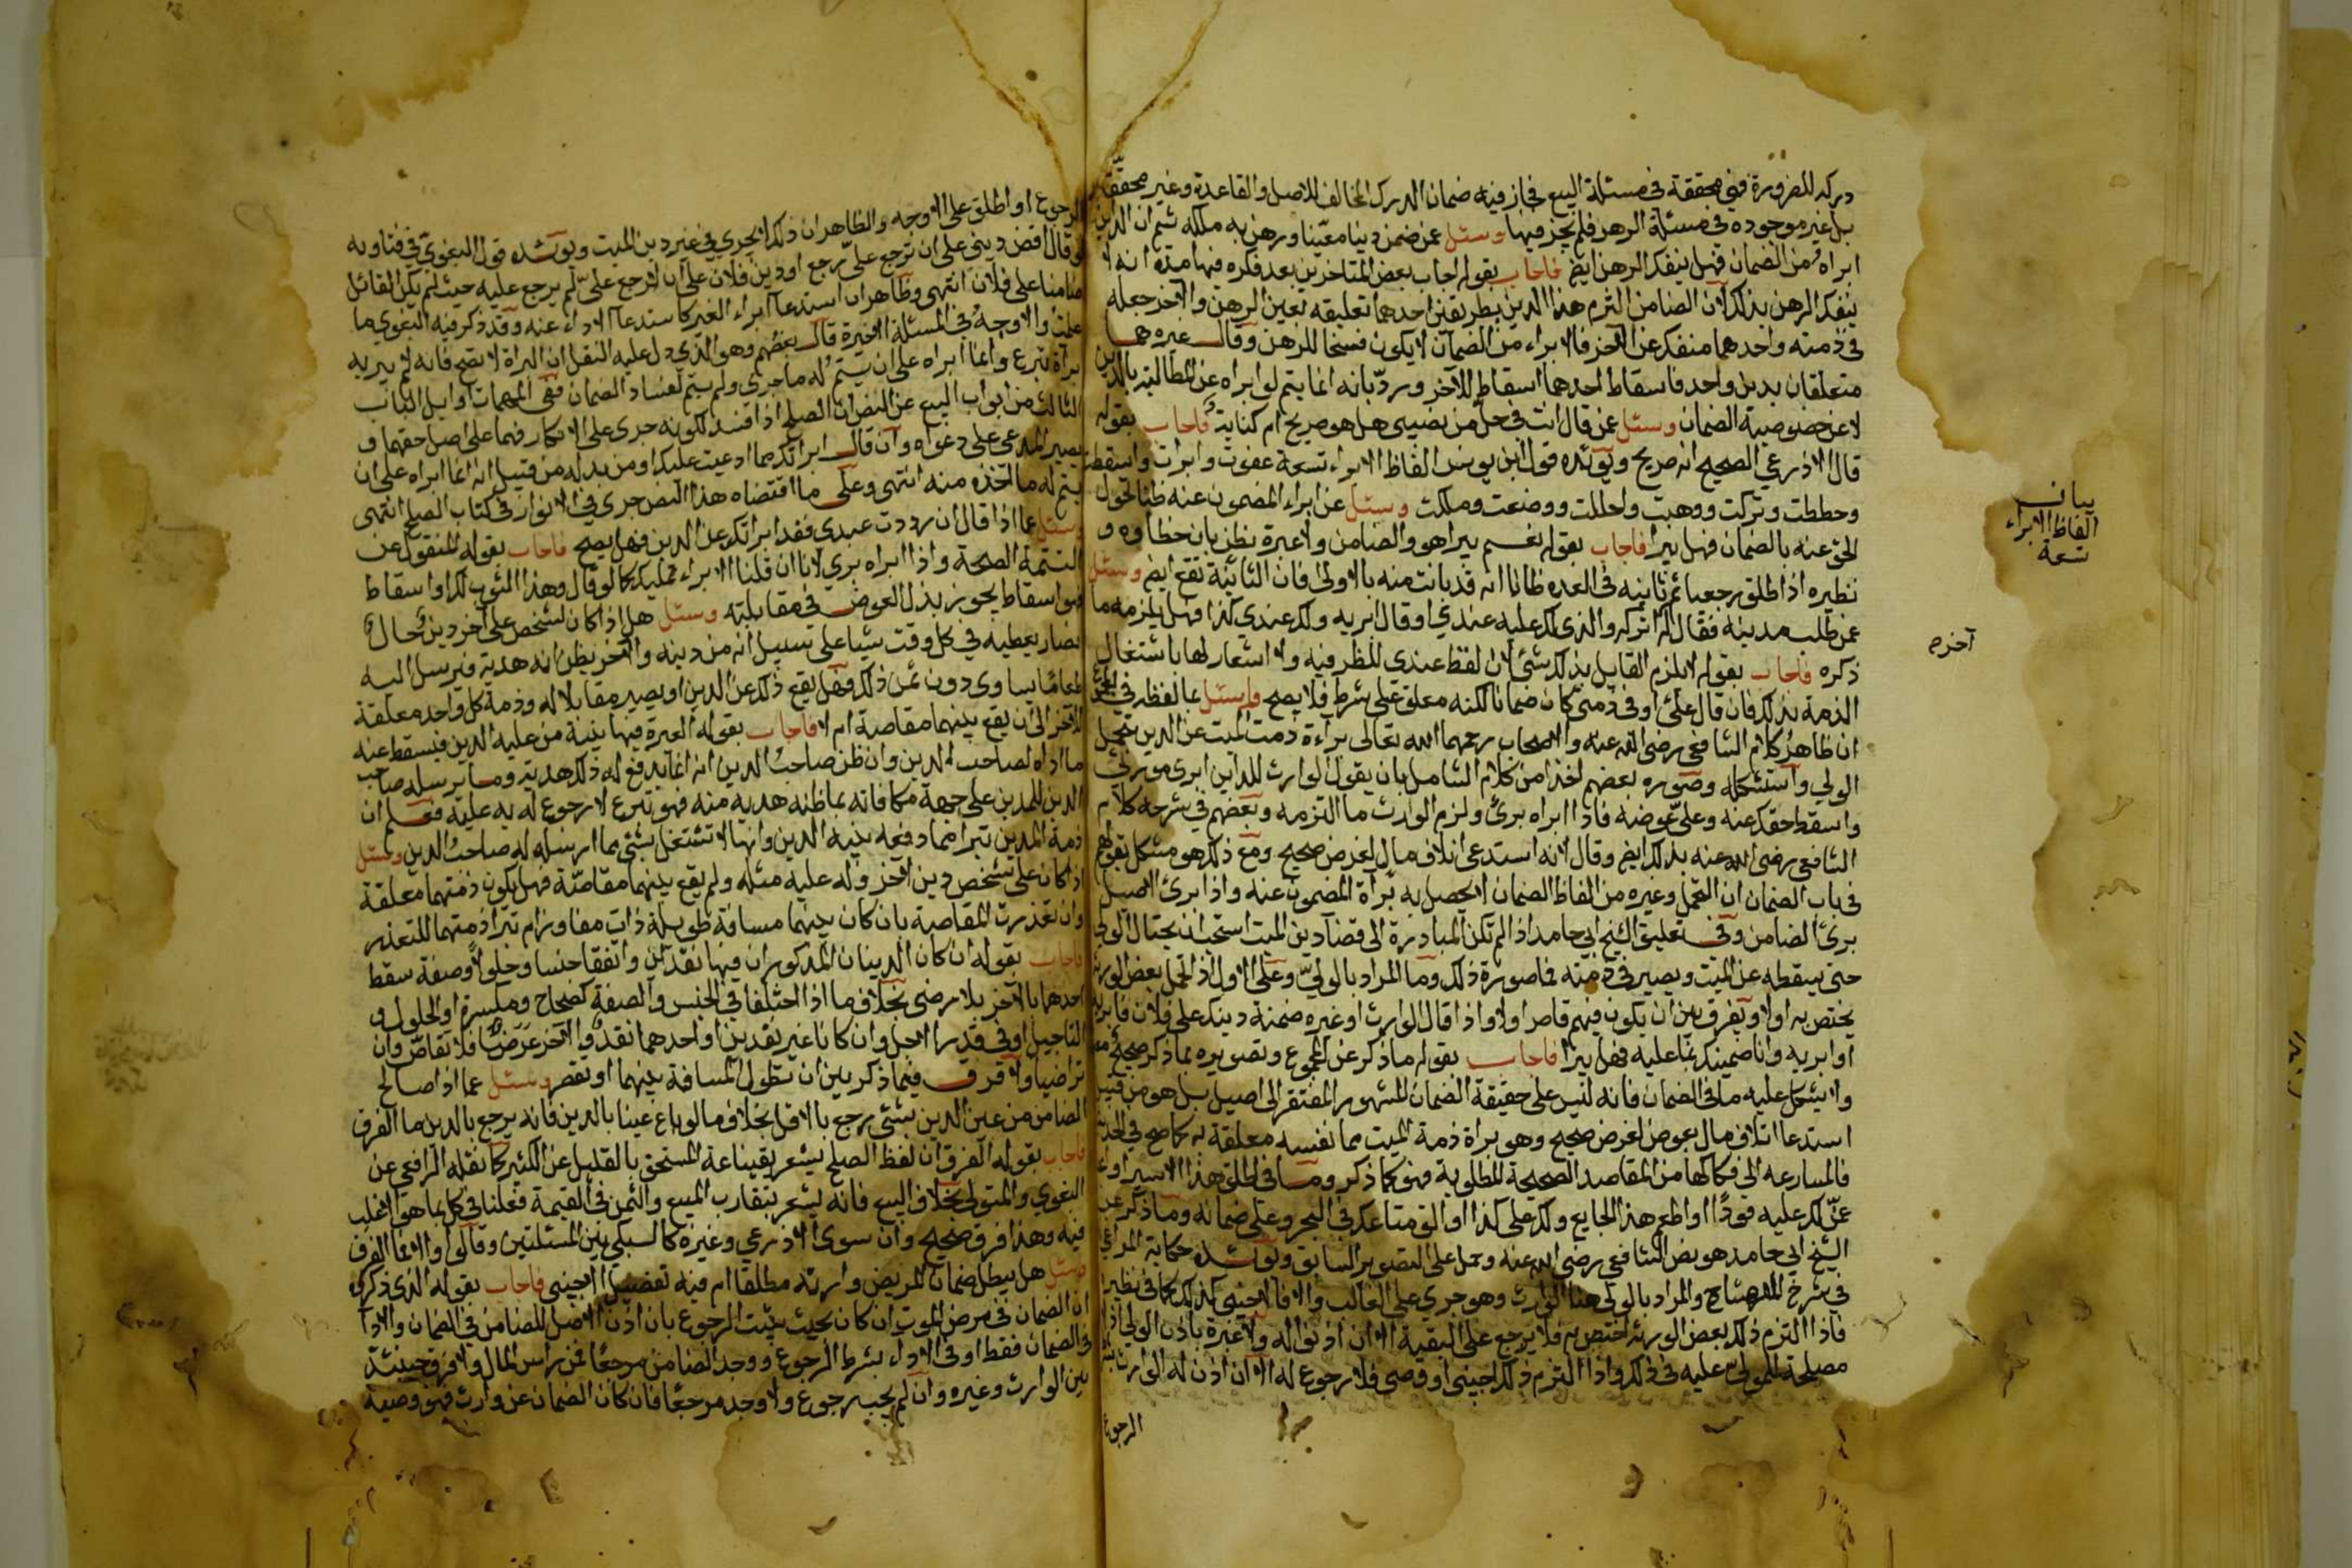 دركه للضرورة فهي محققة في مسئلة البيع فجاز فيه ضمان الدرك المخالف للاصل والقاعدة وغير محققة
بل غير موجوده في مسئلة الرهن فلم يجز فيها وسئل عمن ضمن دينا معينا ورهن به ملكه ثم ان الداين
ابراه من الضمان فهل ينفك الرهن ايض فاجاب بقوله اجاب بعض المتاخرين بعد فكره فيها مدة انه لا
ينفك الرهن بذلك لان الضامن التزم هذا الدين بطريقين احدهما تعليقه بعين الرهن والآخر جعله
في ذمته واحدهما منفك عن الآخر فالابراء من الضمان لا يكون فسخا للرهن وقال غيره هما
متعلقان بدين واحد فاسقاط احدهما اسقاط للآخر وردّ بانه انما يتم لو ابراه عن المطالبة بالدين
لا عن خصوصية الضمان وسئل عمن قال انت في حل من نصيبي هل هو صريح ام كناية فاجاب بقوله
قال الاذرعي الصحيح انه صريح ويؤيده قول ابن يونس الفاظ الابراء تسعة عفوت وابرات واسقطت
وحططت وتركت ووهبت واحللت ووضعت وملكت وسئل عن ابراء المضمون عنه ظنا تحول
الحق عنه بالضمان فهل يبرا فاجاب بقوله نعم يبرا هو والضامن ولا عبرة بظن بان خطاوه و
نظيره اذا طلق رجعيا ثم ثانيه في العده ظانا انه قد بانت منه بالاولى فان الثانية تقع ايض وسئل
عمن طلب مدينه فقال له اتركه والذي لك عليه عندي او قال ابريه ولك عندي كذا فهل يلزمه ما
ذكره فاجاب بقوله لا يلزم القايل بذلك شئ لان لفظ عندي للظرفية ولا اشعار لها باشتغال
الذمة بذلك فان قال عليّ او في ذمتي كان ضمانا لكنه معلق على شرط فلا يصح وسئل عما لفظه في
ان ظاهر كلام الشافعي رضي الله عنه والاصحاب رحمهما الله تعالى براءة ذمة الميت عن الدين بتحمل
الولي واستشكله وصوره بعضهم اخذا من كلام الشامل بان يقول الوارث للداين ابري مورثي
واسقط حقك عنه وعليّ عوضه فاذا ابراه برئ ولزم الوارث ما التزمه وبعضهم في شرحه كلام
الشافعي رضي الله عنه بذلك ايض وقال لانه استدعى اتلاف مال لغرض صحيح ومع ذلك هو مشكل بقولهم
في باب الضمان ان التحمل وغيره من الفاظ الضمان لا يحصل به براة المضمون عنه واذا برئ الاصيل
برئ الضامن وفي تعليق الشيخ ابي حامد اذا لم تكن المبادرة الى قضا دين الميت استحب ان يحتال الولي
حتى يسقطه عن الميت ويصير في ذمته فما صورة ذلك وما المراد بالوليّ وعلى الاول اذا تحمل بعض الورثة
يختص به او لا ويفرق بين ان يكون فيهم قاصر او لا واذا قال الوارث او غيره ضمنت دينك على فلان فابريه
او ابريه وانا ضمينك بما عليه فهل يبرا فاجاب بقوله ما ذكر عن المجموع وتصويره بما ذكر صحيح
ولا يشكل عليه ما في الضمان فانه ليس على حقيقة الضمان المشهور المفتقر الى اصيل بل هو من قبيل
استدعا اتلاف مال بعوض لغرض صحيح وهو براة ذمة الميت مما نفسه معلقة به كما صح في الحديث
فالمسارعه الى فكاكها من المقاصد الصحيحة المطلوبة فهو كما ذكر وما في اطلق هذا الاسير او
عن لك عليه قودا او اطعم هذا الجايع ولك علي كذا او الق متاعك في البحر وعلي ضمانه وما ذكر عن
الشيخ ابي حامد هو نص الشافعي رضي الله عنه وحمل على التصوير السابق ويؤيده حكاية
في شرح المنهاج والمراد بالولي هنا الوارث وهو جري على الغالب والا فالاجنبي كذلك كما في نظيره
فاذا التزم ذلك بعض الورثه اختص به فلا يرجع على البقية الا ان اذنوا له ولا عبرة باذن الولي اذا
مصلحة للموليّ عليه في ذلك واذا التزم ذلك اجنبي او وصي فلا رجوع له الا ان اذن له الوارث
الرجوع
بيان
الفاظ الابراء
تسعة
آخره
الرجوع او اطلق على الاوجه والظاهر ان ذلك يجري في غير دين الميت ويؤيده قول البغوي في فتاويه
لو قال اقض ديني على ان ترجع علي رجع او دين فلان على ان لا ترجع عليّ لم يرجع عليه حيث لم يكن القائل
ضامنا على فلان انتهى وظاهر ان استدعا ابراء الغير كاستدعا الاداء عنه وقد ذكر فيه البغوي ما
علمت والاوجه في المسئلة الاخيرة قال بعضهم وهو الذي دل عليه النقل ان البراة لا تصح فانه لم يبر به
براة تبرع وانما ابراه على ان يتم له ما جرى ولم يتم لفساد الضمان ففي المهمات اوايل الباب
الثالث من ابواب البيع عن النص ان الصلح اذا فسد لكونه جرى على الانكار فهما على اصل حقهما و
يصير المدعي على دعواه وان قال ابراتك مما ادعيت عليك او من بدله من قبيل انه انما ابراه على ان
يتم له ما اخذه منه انتهى وعلى ما اقتضاه هذا النص جرى في الانوار في كتاب الصلح انتهى
وسئل عما اذا قال ان رددت عبدي فقد ابراتك عن الدين فهل يصح فاجاب بقوله المنقول عن
التتمة الصحة واذا ابراه برئ لانا ان قلنا الابراء تمليك كما لو قال وهذا الثوب لك او اسقاط
فهو اسقاط يجوز بذل العوض في مقابلته وسئل هل اذا كان لشخص على آخر دين حال
فصار يعطيه في كل وقت شيا على سبيل انه من دينه والآخر يظن انه هدية فيرسل اليه
طعاما يساوي دون ثمن ذلك فهل يقع ذلك عن الدين او يصير مقابلا له وذمة كل واحد معلقة
للآخر الى ان يقع بينهما مقاصة ام لا فاجاب بقوله العبرة فيها بنية من عليه الدين فيسقط عنه
ما اداه لصاحب الدين وان ظن صاحب الدين انه انما يدفع له ذلك هدية وما يرسله صاحب
الدين للمدين على جهة مكافاته بما ظنه هديه منه فهو تبرع لا رجوع له به عليه فعلم ان
ذمة المدين تبرا مما دفعه بنية الدين وانها لا تشتغل بشئ مما ارسله له صاحب الدين وسئل
اذا كان على شخص دين لآخر وله عليه مثله ولم يقع بينهما مقاصّة فهل يكون ذمتهما معلقة
وان تعذرت المقاصة بان كان بينهما مسافة طويلة ذات مفاوز ام تبرا ذمتهما للتعذر
فاجاب بقوله ان كان الدينان المذكوران فيها نقدين واتفقا جنسا وحلولا وصفة سقط
احدهما بالآخر بلا رضى بخلاف ما اذا اختلفا في الجنس والصفة كصحاح ومكسرة او الحلول و
التاجيل او في قدر الاجل وان كانا غير نقدين او احدهما نقد والآخر عرضا فلا تقاص وان
تراضيا ولا فرق فيما ذكر بين ان تطول المسافة بينهما او تقصر وسئل عما اذا صالح
الضامن من عين الدين بشئ يرجع بالاقل بخلاف ما لو باع عينا بالدين فانه يرجع بالدين ما الفرق
فاجاب بقوله الفرق ان لفظ الصلح يشعر بقناعة المستحق بالقليل عن الكثير كما نقله الرافعي عن
البغوي والمتولي بخلاف البيع فانه يشعر بتقارب المبيع والثمن في القيمة فعلنا في كل بما هو الاغلب
فيه وهذا فرق صحيح وان سوى الاذرعي وغيره كالسبكي بين المسئلتين وقالوا والا فما الفرق
وسئل هل يبطل ضمان المريض وارثه مطلقا ام فيه تفصيل اجنبي فاجاب بقوله الذي ذكروه
ان الضمان في مرض الموت ان كان بحيث يثبت الرجوع بان اذن الاصل للضامن في الضمان والادا
في الضمان فقط او في الاداء بشرط الرجوع ووجد الضامن مرجعا فمن راس المال ولا فرق حينئذ
بين الوارث وغيره وان لم يجب رجوع ولا وجد مرجعا فان كان الضمان عن وارث فهو وصية